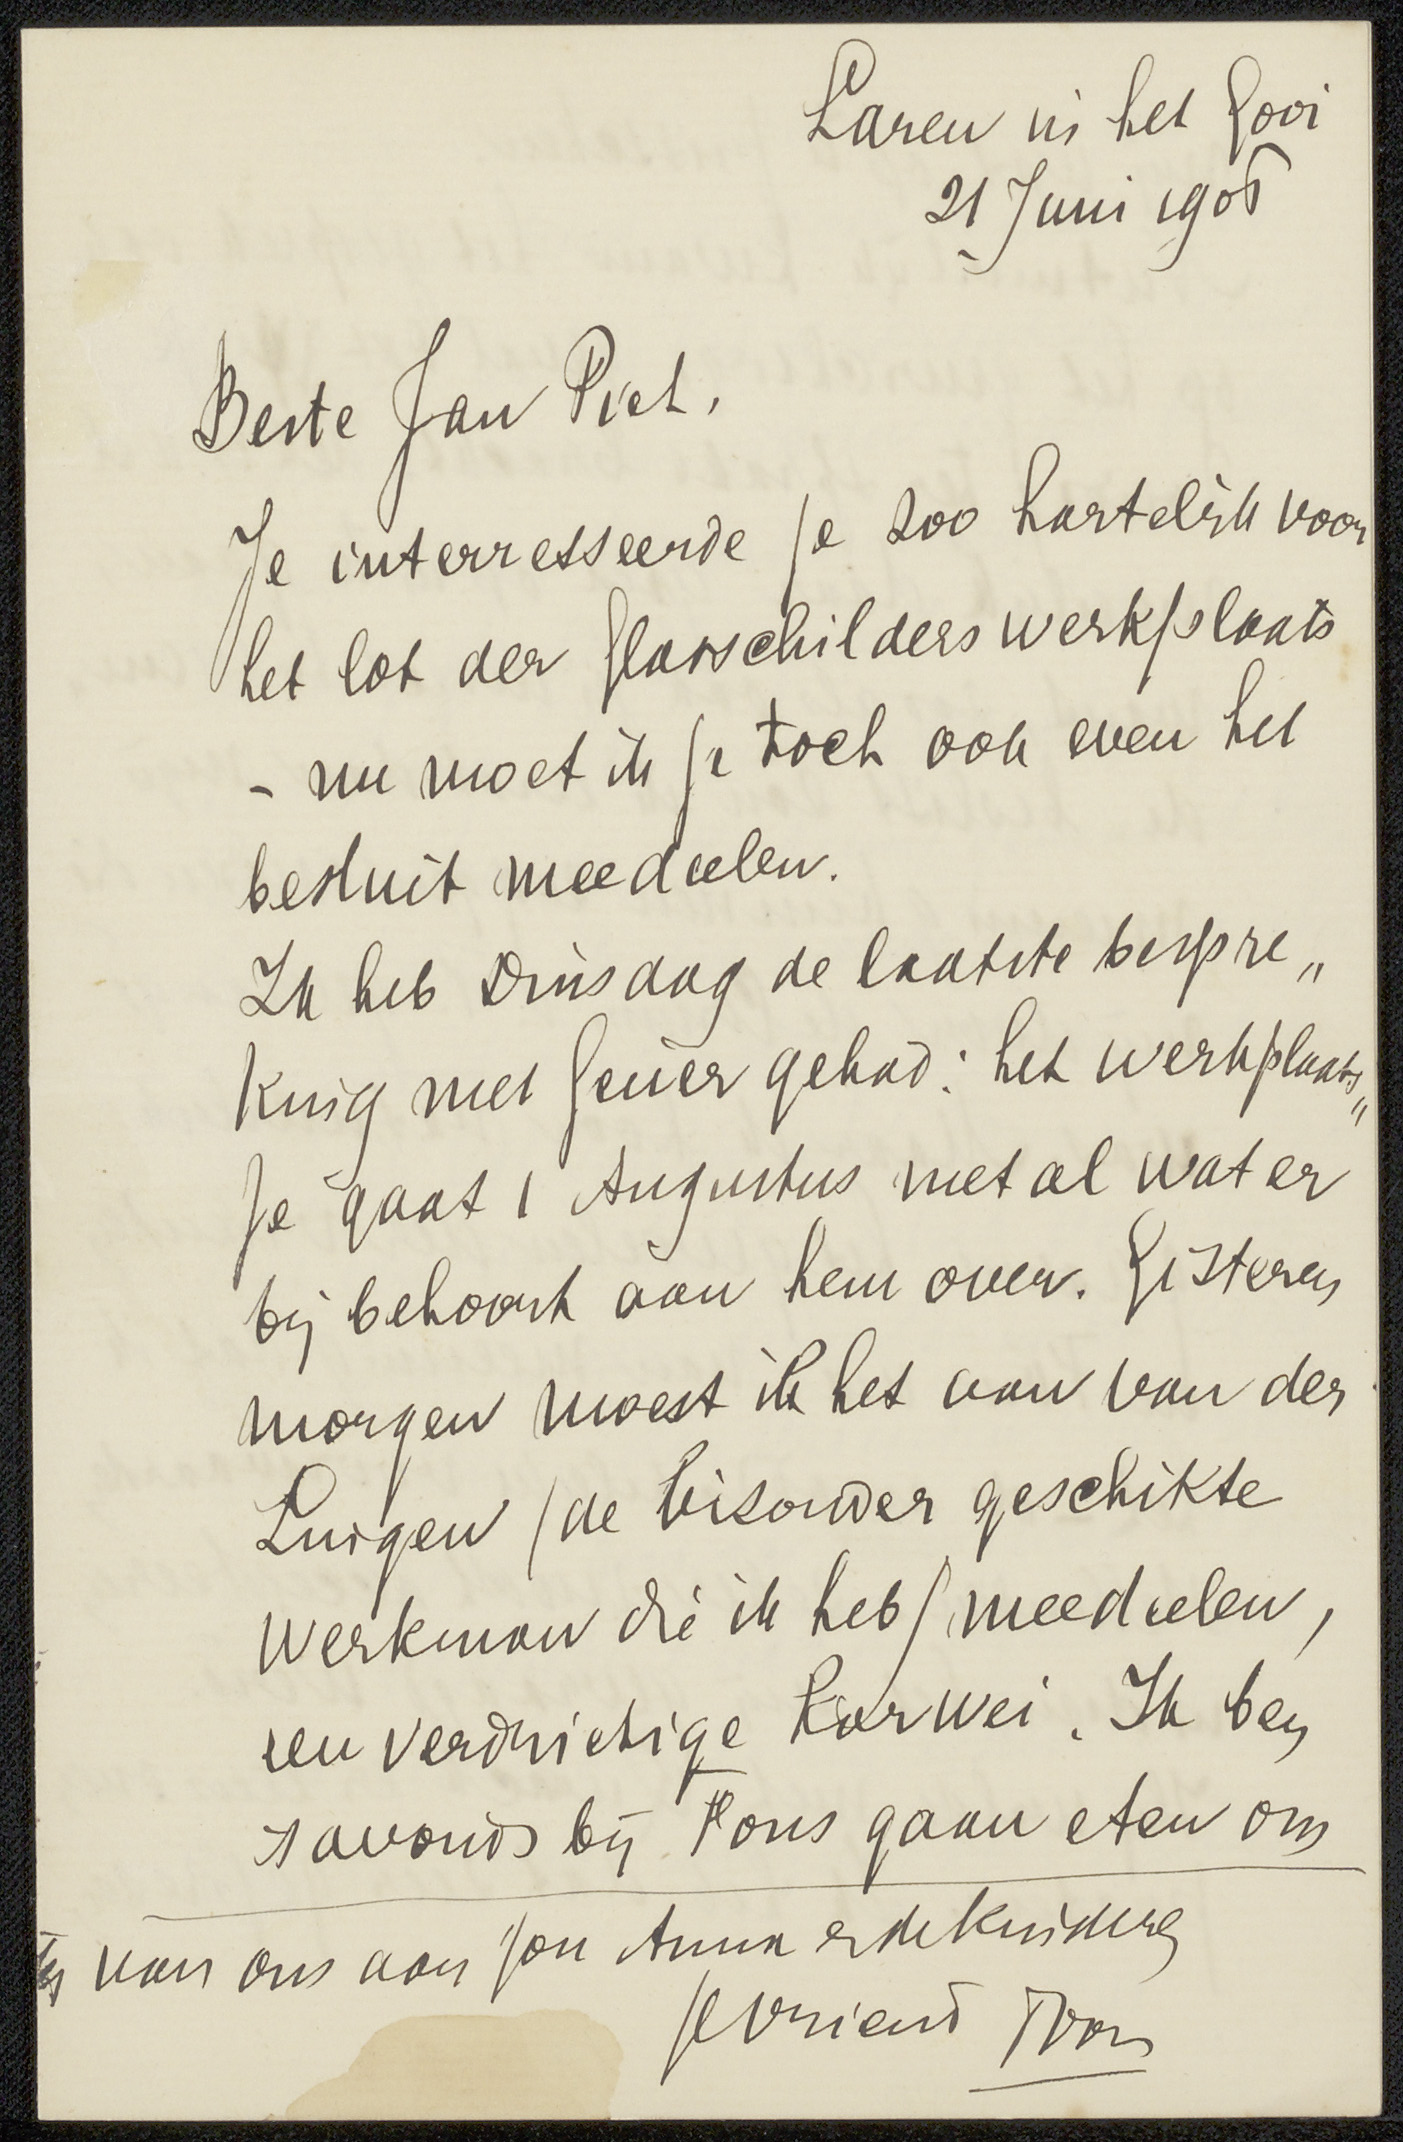 Laren in het Gooi
21 Juni 1905
Beste Jan Piet,
Je interresseerde je zoo hartelijk voor
het lot der glasschilderswerkplaats
- nu moet ik je toch ook even het
besluit meedeelen.
Ik heb Dinsdag de laatste bespre„
king met Geuer gehad: het werkplaats„
je gaat 1 Augustus met al wat er
bij behoort aan hem over. Gisteren
morgen moest ik het aan van der
Lingen /de bizonder geschikte
werkman die ik heb/ meedeelen,
een verdrietige karwei. Ik ben
s avonds bij Fons gaan eten om
van ons aan jou Anna en de kinderen
je vriend Toon